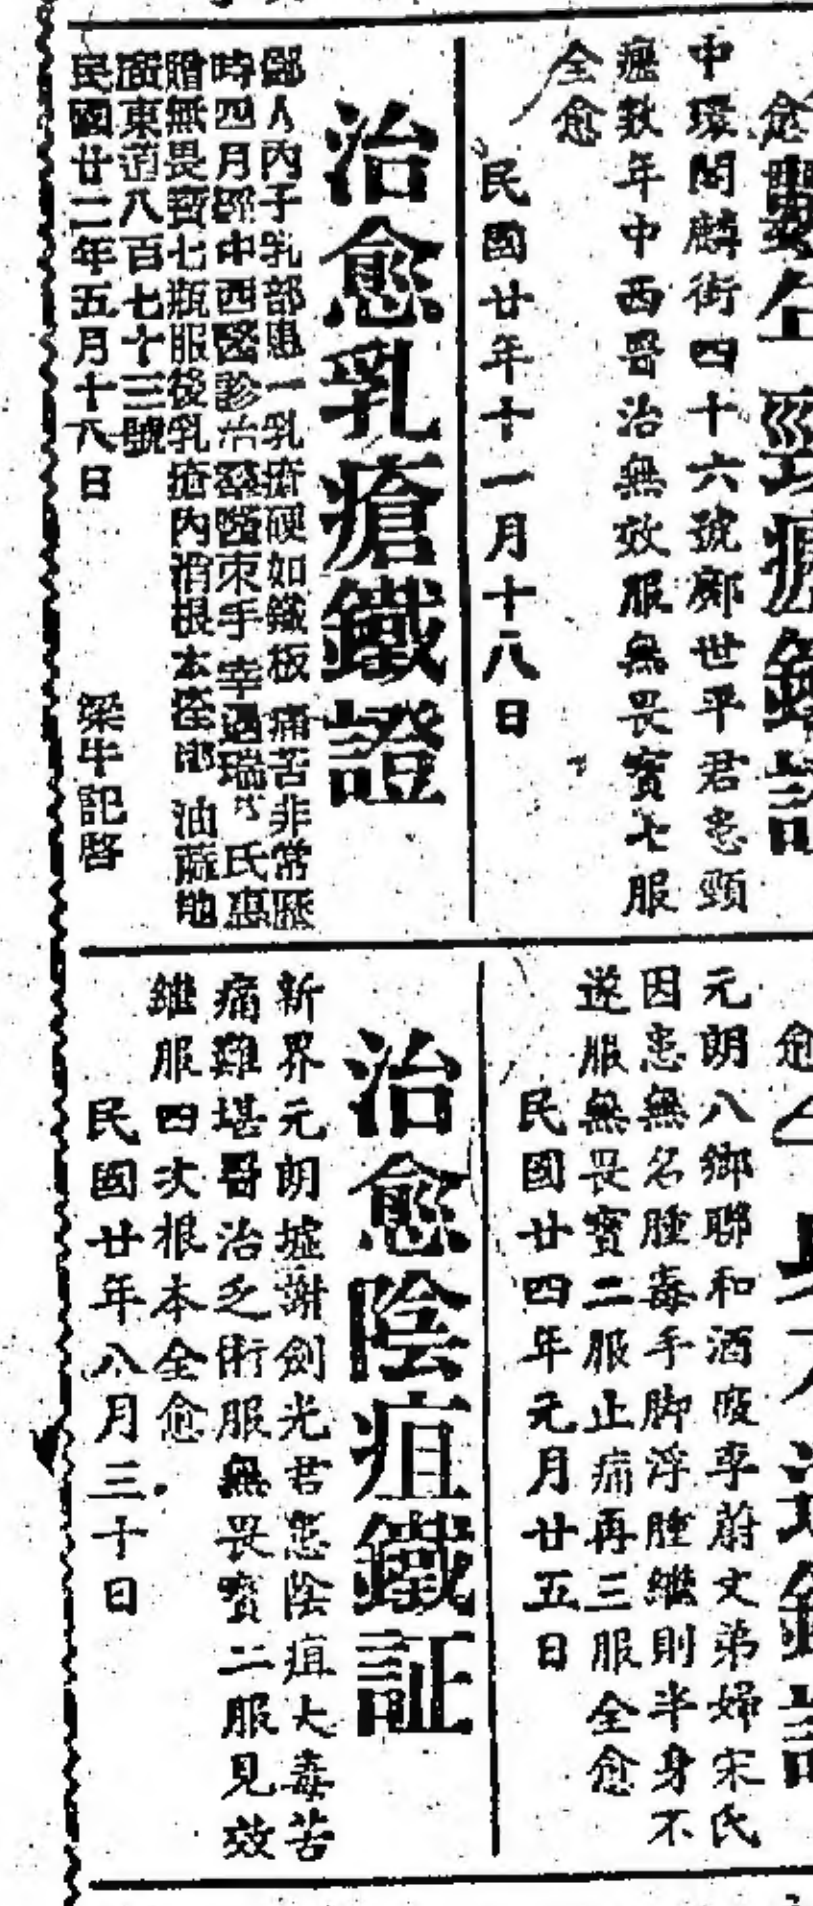 中環閣麟街四十六號鄺世平君患頸
癧數年中西醫治無效服無畏寶七服
全愈
民國廿年十一月十八日
治愈乳瘡鐵證
鄙人內子乳部患一乳瘡硬如鐵板痛苦非常歷
時四月經中西醫診治羣醫束手幸遇瑞 氏惠
贈無畏寶七瓶服後乳瘡內消根本痊 油蔴地
廣東道八百七十三號
民國廿二年五月十八日
梁牛記啓
元朗八鄉聯和酒廠李蔚文弟婦宋氏
因患無名腫毒手脚浮腫繼則半身不
遂服無畏寶二服止痛再三服全愈
民國廿四年元月廿五日
治愈陰疽鐵証
新界元朗墟謝劍光君患陰疽大毒苦
痛難堪醫治乏術服無畏寶二服見效
繼服四次根本全愈
民國廿年八月三十日